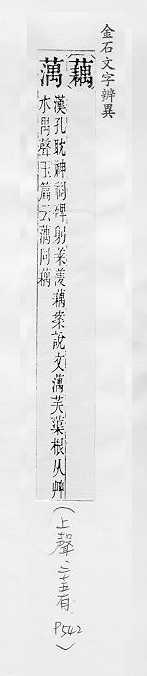 金石文字辨異
【藕】
蕅
漢孔耽神祠碑躬菜菱藕案說文蕅芙蕖根从艸
水禺聲玉篇云蕅同藕
（上聲 二十五有 P542）